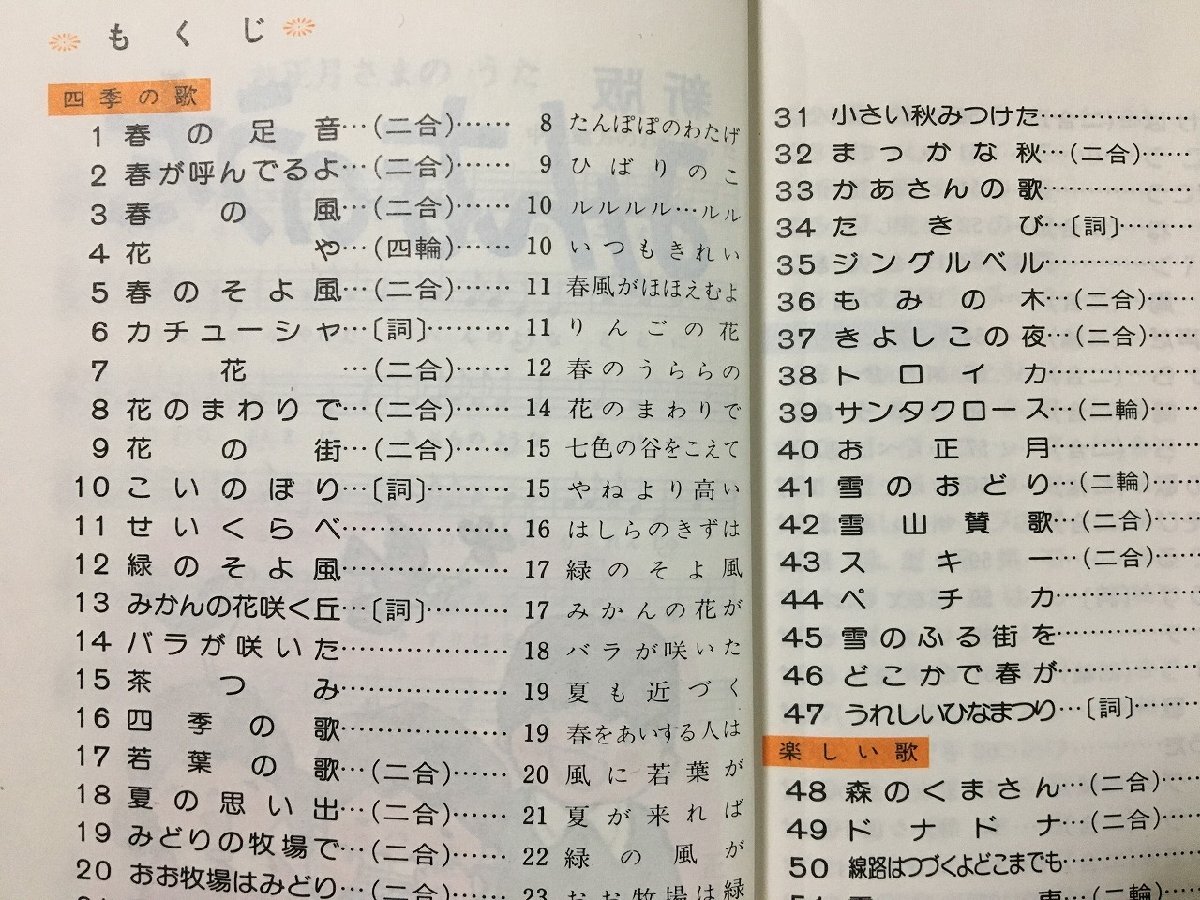 もくじ
四季の歌
1 春の足音…(二合)…… 8 たんぽぽのわたげ
2 春が呼んでるよ…(二合)…… 9 ひばりのこ
3 春の風…(二合)…… 10 ルルルル…ルル
4 花や…(四輪)…… 10 いつもきれい
5 春のそよ風…(二合)…… 11 春風がほほえむよ
6 カチューシャ…〔詞〕……… 11 りんごの花
7 花…(二合)…… 12 春のうららの
8 花のまわりで…(二合)…… 14 花のまわりで
9 花の街…(二合)…… 15 七色の谷をこえて
10 こいのぼり…〔詞〕……… 15 やねより高い
11 せいくらべ……………… 16 はしらのきずは
12 緑のそよ風……………… 17 緑のそよ風
13 みかんの花咲く丘…〔詞〕……… 17 みかんの花が
14 バラが咲いた……………… 18 バラが咲いた
15 茶つみ……………… 19 夏も近づく
16 四季の歌……………… 19 春をあいする人は
17 若葉の歌…(二合)…… 20 風に若葉が
18 夏の思い出…(二合)…… 21 夏が来れば
19 みどりの牧場で…(二合)…… 22 緑の風が
20 おお牧場はみどり…(二合)…… 23 おお牧場は緑
31 小さい秋みつけた……………
32 まっかな秋…(二合)……
33 かあさんの歌……………
34 たきび…〔詞〕………
35 ジングルベル……………
36 もみの木…(二合)……
37 きよしこの夜…(二合)……
38 トロイカ……………
39 サンタクロース…(二輪)……
40 お正月……………
41 雪のおどり…(二輪)……
42 雪山賛歌…(二合)……
43 スキー…(二合)……
44 ペチカ……………
45 雪のふる街を……………
46 どこかで春が……………
47 うれしいひなまつり…〔詞〕……
楽しい歌
48 森のくまさん…(二合)……
49 ドナドナ…(二合)……
50 線路はつづくよどこまでも……………